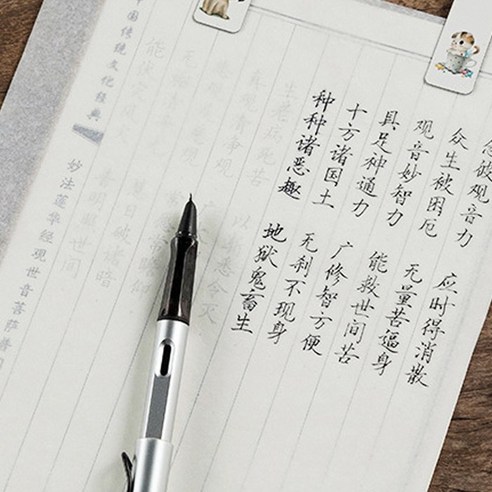 念彼观音力 应时得消散
众生被困厄 无量苦逼身
观音妙智力 能救世间苦
具足神通力 广修智方便
十方诸国土 无刹不现身
种种诸恶趣 地獄鬼畜生
生老病死苦 以渐悉令灭
中国传统文化经典
妙法莲华经观世音菩萨普门